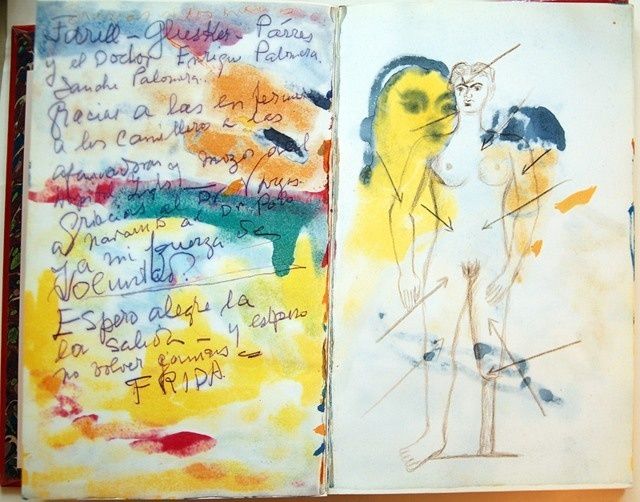 Farill – Glusker – Párres
y el Doctor Enrique Palomera
Sanche Palomera.
Gracias a las enfermeras
a los Camilleros a las
afanadoras y mozos del
Hospital Inglés – Vargas
Gracias al Dr.
a Navarro al Dr. Polo
y a mi fuerza de
Voluntad.
Espero alegre la
la Salida – y espero
no volver jamás –
FRIDA